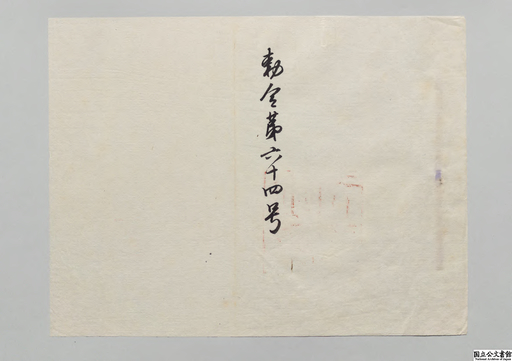 勅令第六十四号
国立公文書館
National Archives of Japan